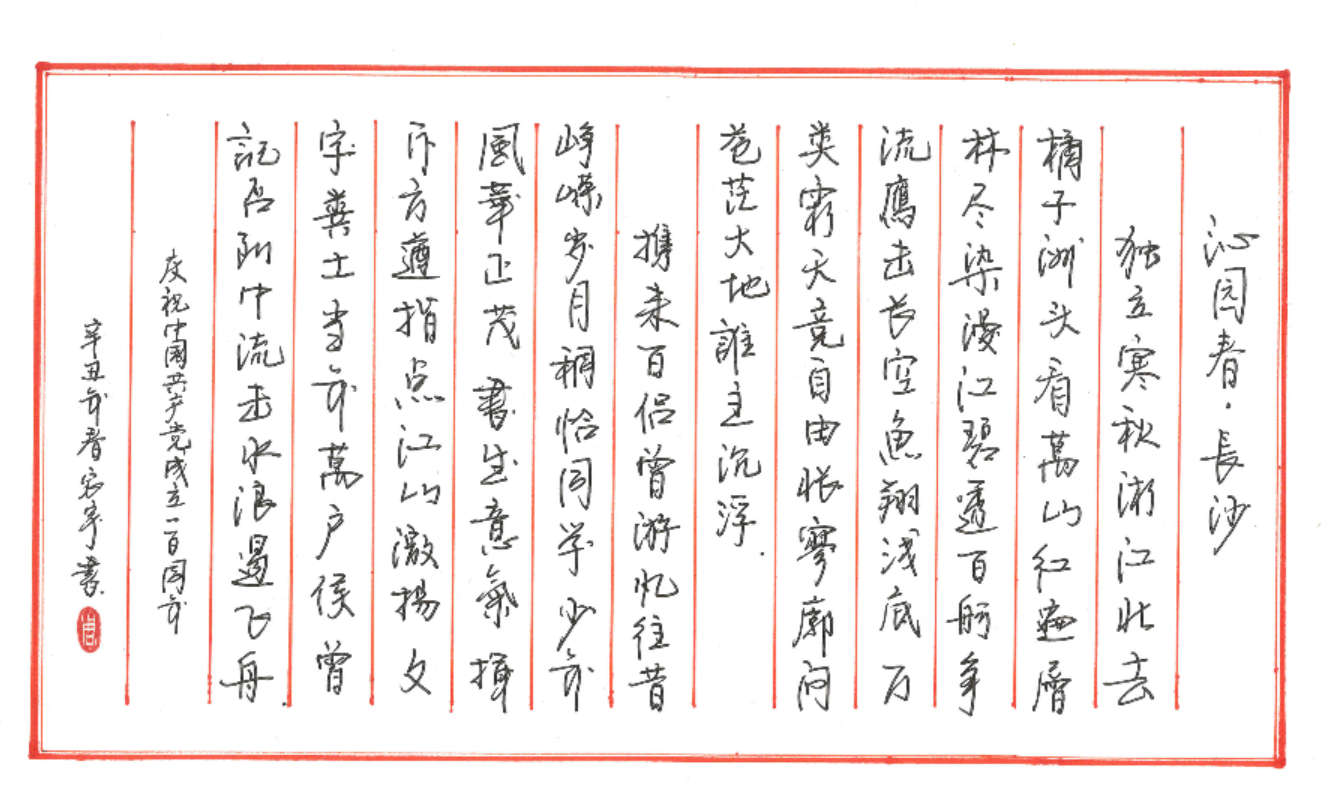 沁园春·長沙
独立寒秋湘江北去
橘子洲头看萬山红遍層
林尽染漫江碧透百舸争
流鷹击长空魚翔浅底万
类霜天竞自由怅寥廓问
苍茫大地誰主沉浮.
携来百侣曾游忆往昔
峥嵘岁月稠恰同学少年
風華正茂書生意氣揮
斥方遒指点江山激揚文
字粪土当年萬户侯曾
記否到中流击水浪遏飞舟.
庆祝中國共产党成立一百周年
辛丑年春書